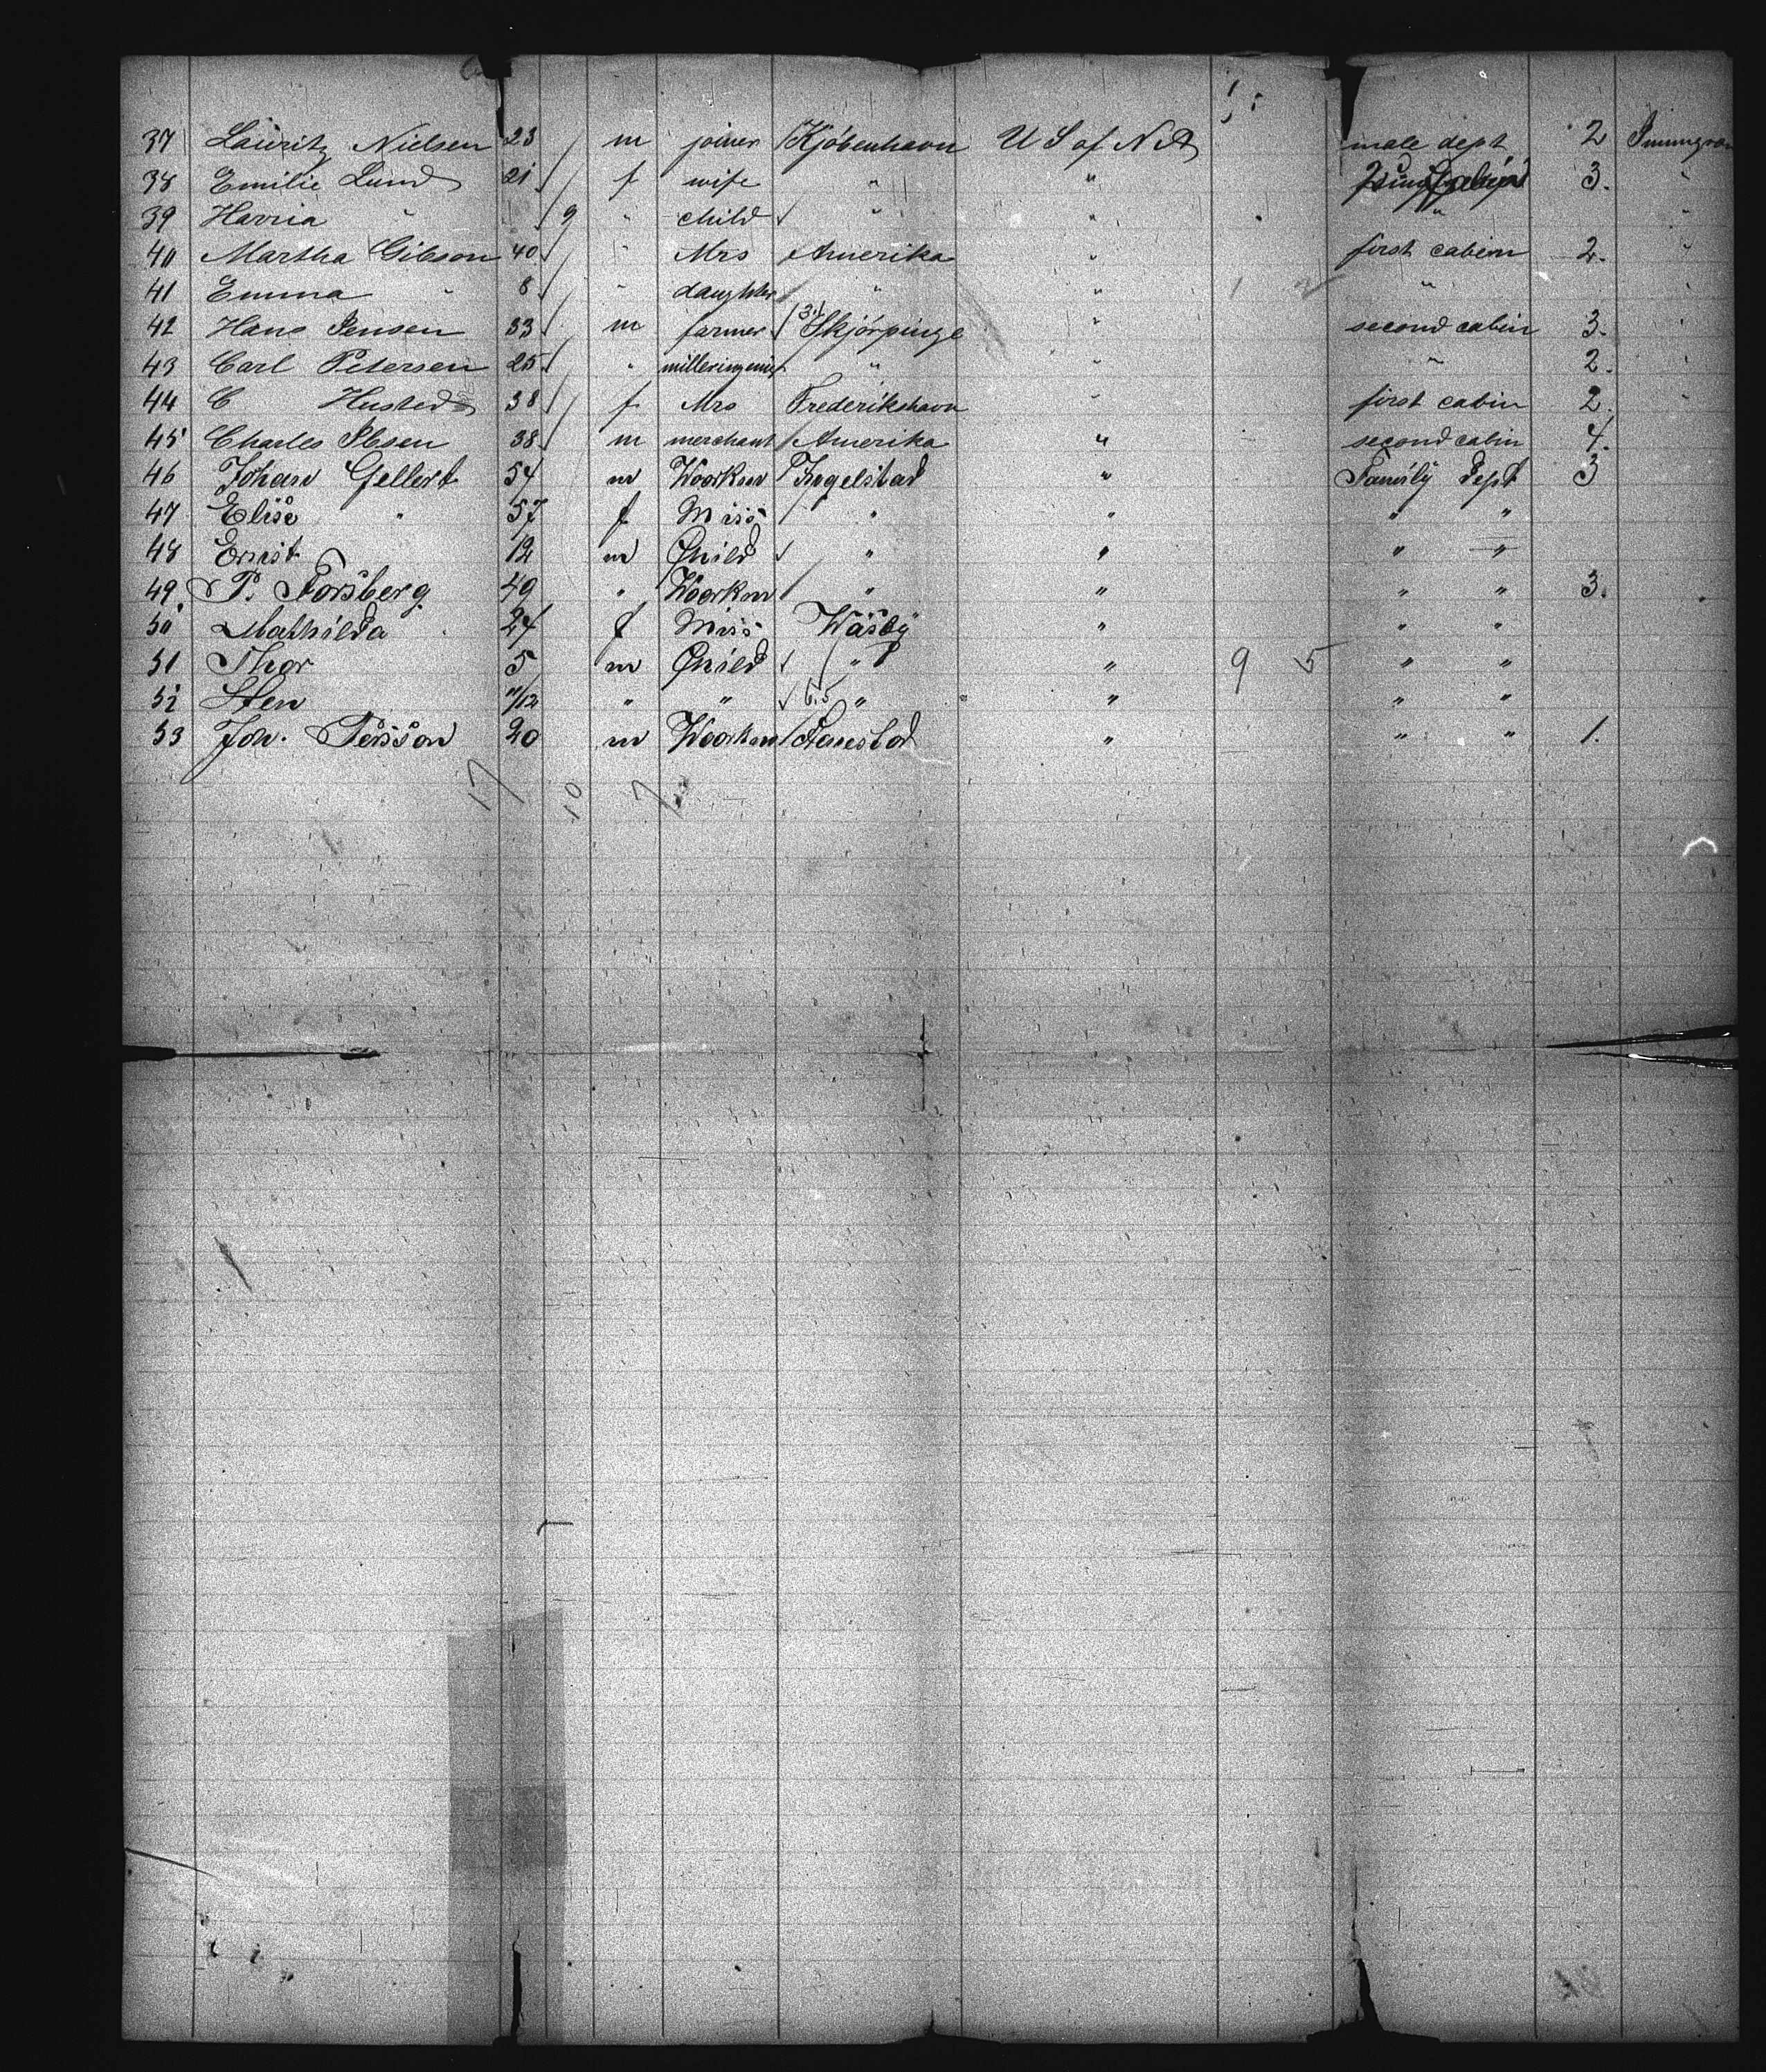 37 Lauritz Nielsen 23 m joiner Kjöbenhavn U S of N A male dept 2
38 Emilie Lund 21 f wife " " 3.
39 Harria " 9 " child " " " "
40 Martha Gibson 40 " Mrs Amerika " first cabin 2. "
41 Emma " 8 " daughter " " "
42 Hans Jensen 33 m farmer Skjörpinge " second cabin 3.
43 Carl Petersen 25 " " " " 2.
44 C Husted 38 f Mrs Frederikshavn " first cabin 2. "
45 Charles Ibsen 38 m merchant Amerika " second cabin 4.
46 Johan Gellert 54 m Woorkm Ingelstad " Family Dept 3
47 Elise " 57 f Miss " " " "
48 Ernst 12 m Child " " " "
49 P. Forsberg 49 " Woorkm " " " " 3.
50 Mathilda 24 f Miss Wäsby " " "
51 Thor 5 m Child " " 9 5 " "
52 Sten 11/12 " " " " " "
53 Joh. Persson 20 m Woorkm " " " 1.
17 10 7